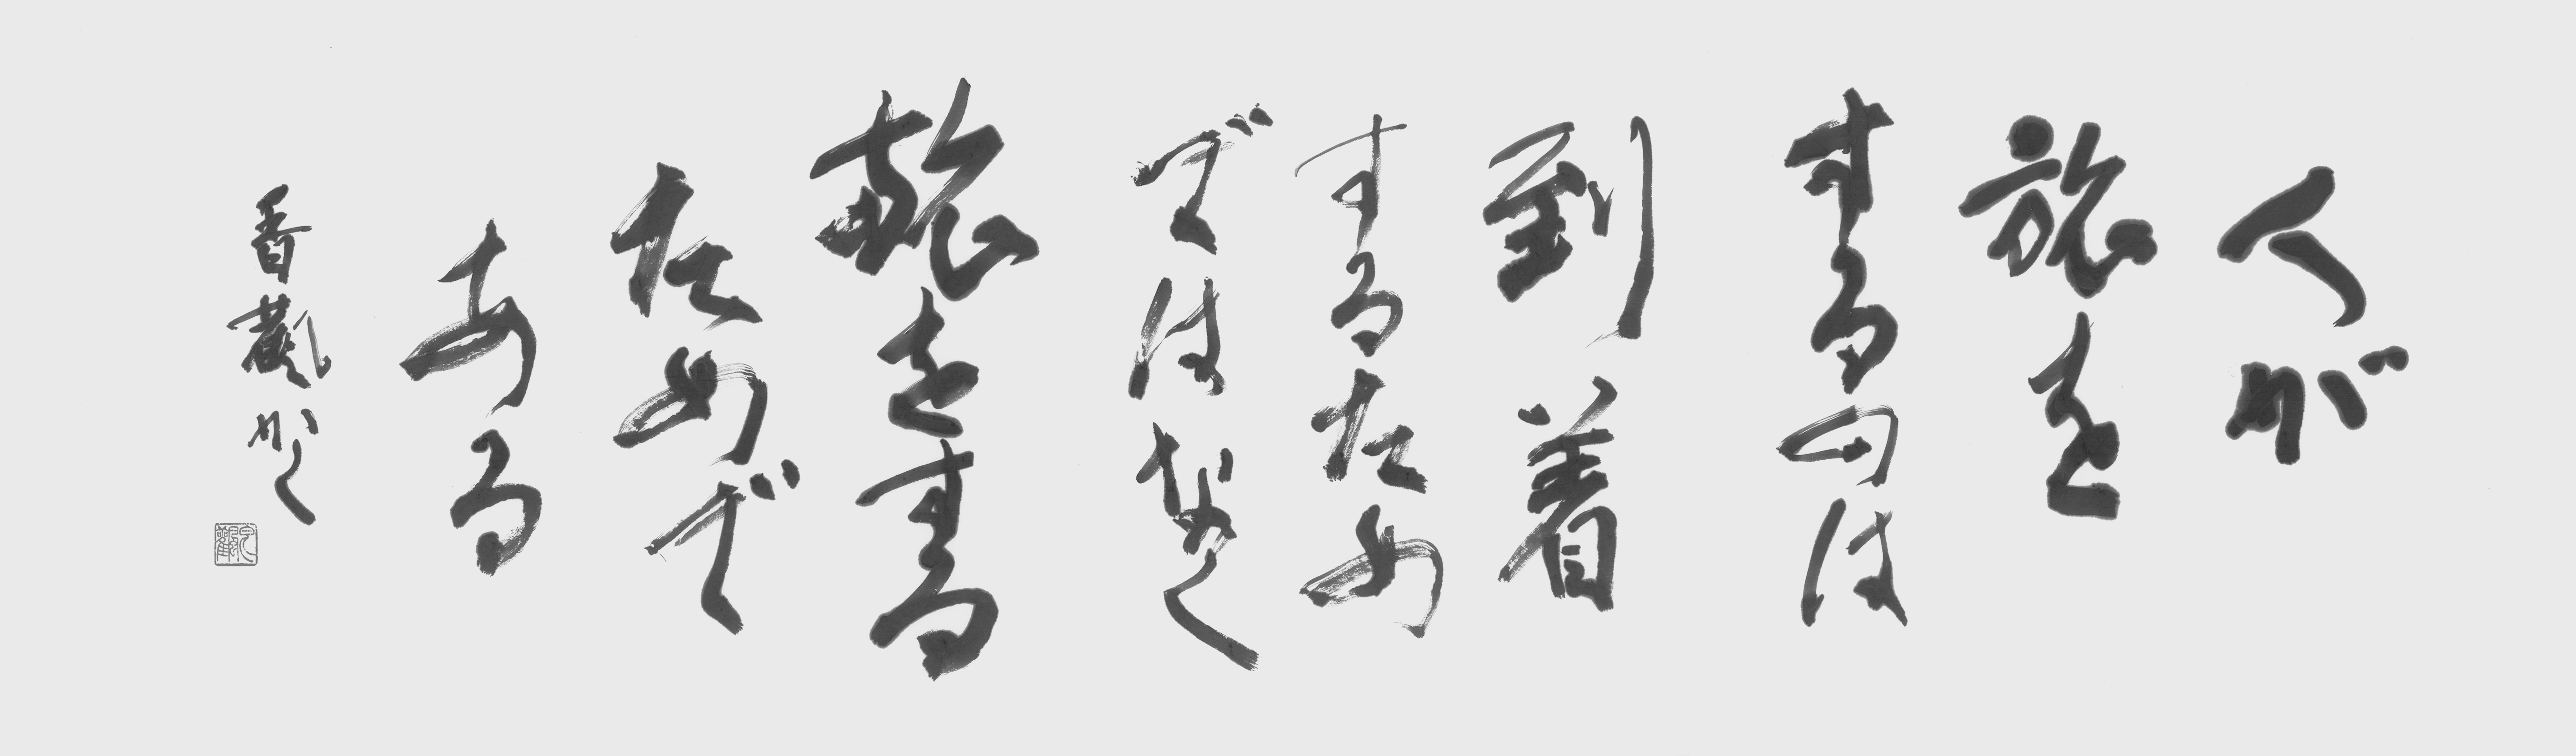 人が
旅を
するのは
到着
するため
ではなく
旅をする
ためで
ある
香觀かく